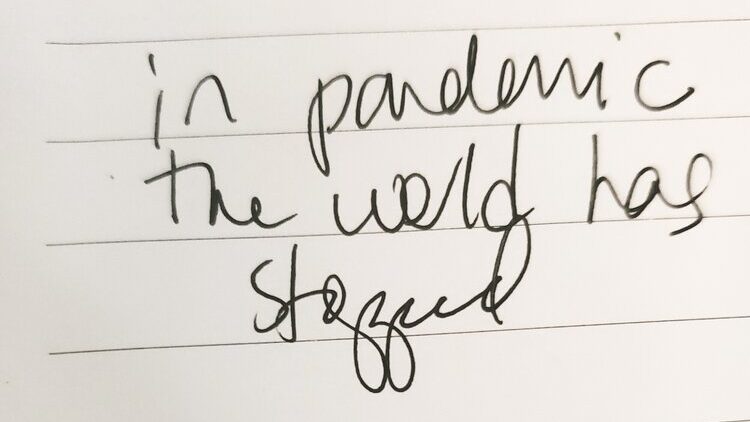 in pandemic
the world has
stopped